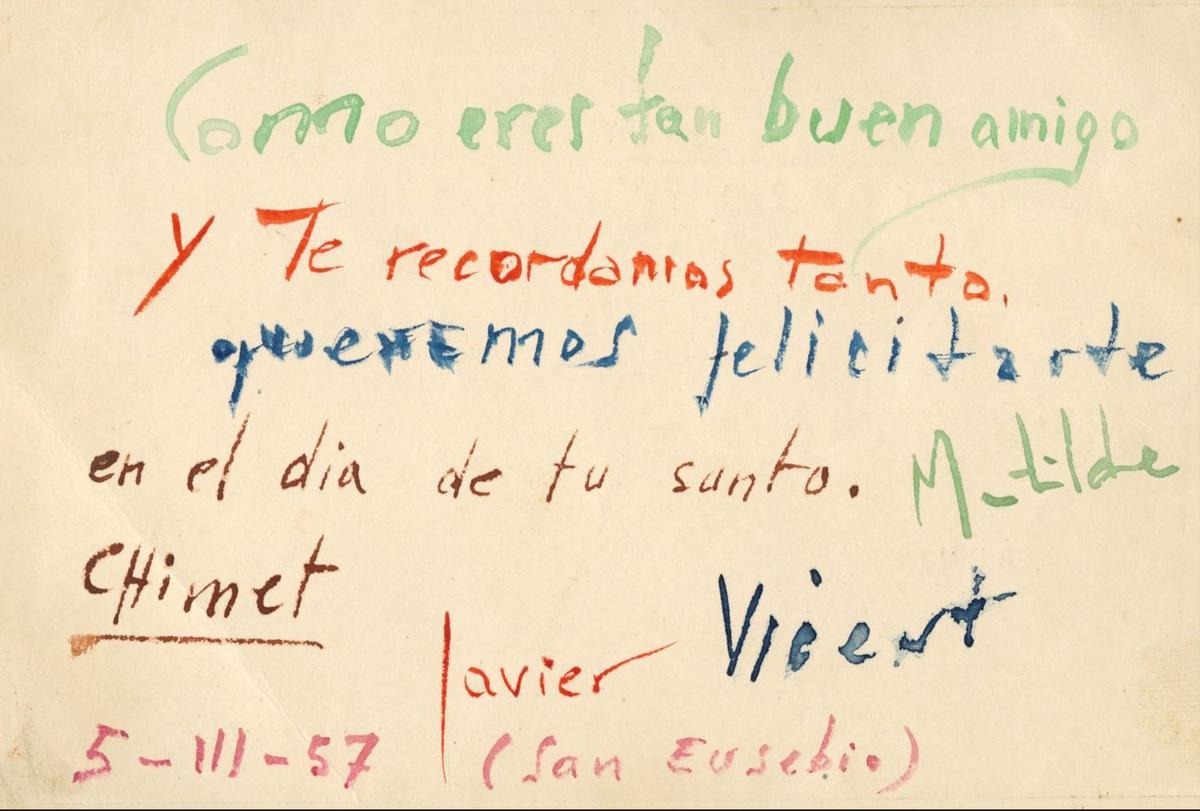 Como eres tan buen amigo
y Te recordamos tanto,
queremos felicitarte
en el dia de tu santo. Matilde
CHimet
Javier Vicent
5-III-57 (San Eusebio)